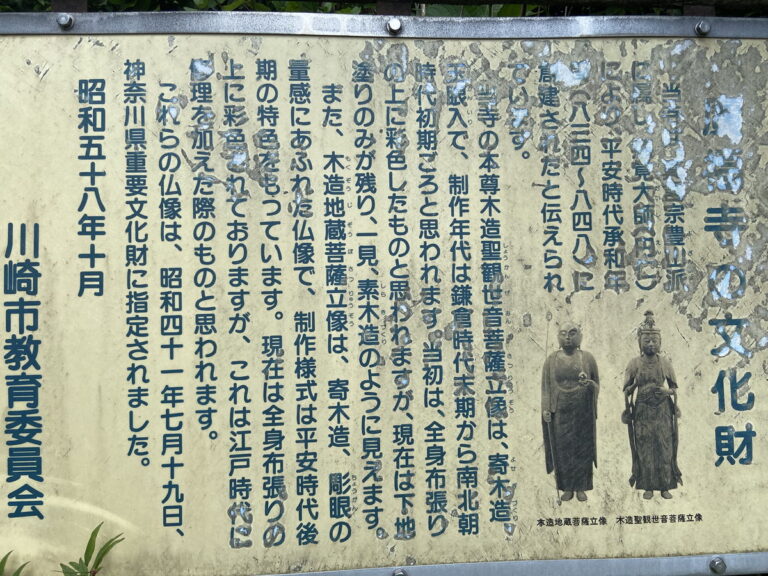 寺の文化財
当寺は 宗豊山派
に属し 覚大師(円仁)
により、平安時代承和年
(八三四〜八四八)に
創建されたと伝えられ
ています。
当寺の本尊木造聖観世音菩薩立像は、寄木造、
玉眼入で、制作年代は鎌倉時代末期から南北朝
時代初期ごろと思われます。当初は、全身布張り
の上に彩色したものと思われますが、現在は下地
塗りのみが残り、一見、素木造のように見えます。
また、木造地蔵菩薩立像は、寄木造、彫眼の
量感にあふれた仏像で、制作様式は平安時代後
期の特色をもっています。現在は全身布張りの
上に彩色されておりますが、これは江戸時代に
修理を加えた際のものと思われます。
これらの仏像は、昭和四十一年七月十九日、
神奈川県重要文化財に指定されました。
昭和五十八年十月
川崎市教育委員会
木造地蔵菩薩立像
木造聖観世音菩薩立像